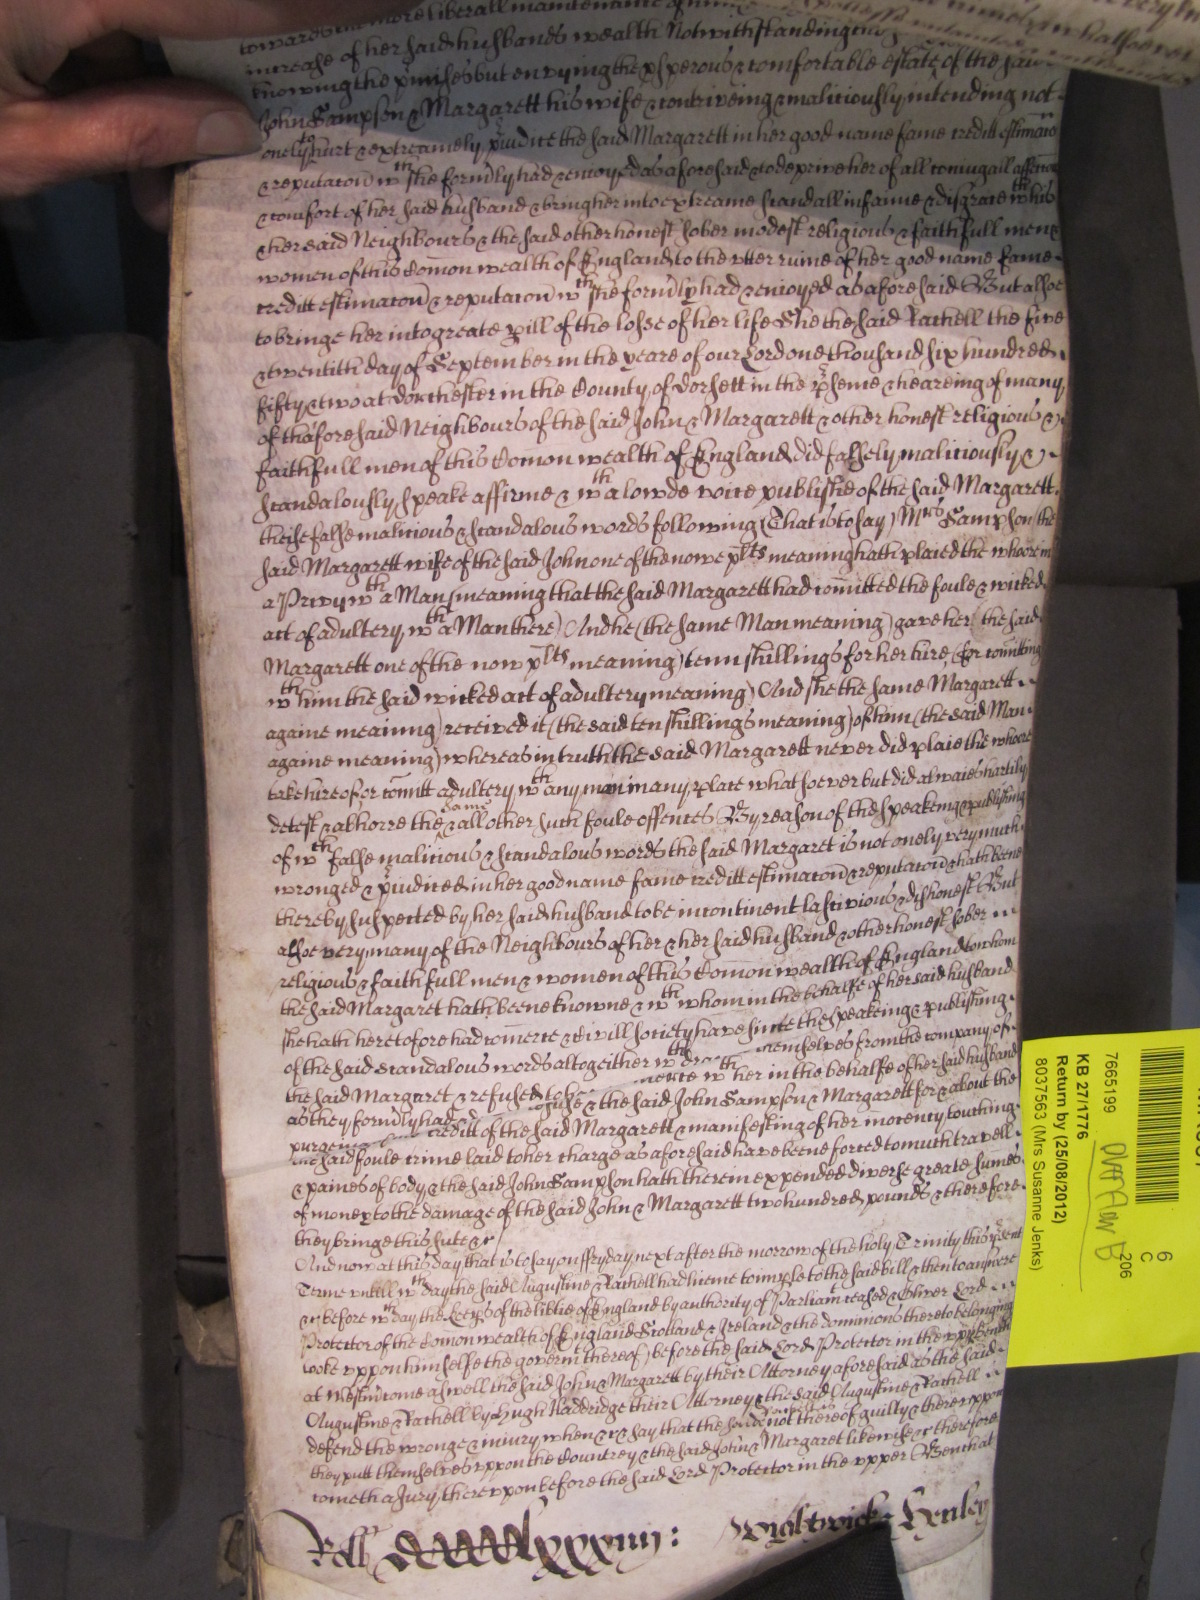 towards the more liberall maintenance of
increase of her said husbands wealth Notwithstanding
knowing the pmises but envying the psperous & comfortable estate of the said
John Sampson & Margarett his wife & contriveing & maliciously intending not
onely to hurt & extreamely piudice the said Margarett in her good name fame creditt estimacon
& reputacon wth she formly had & enioyed as aforesaid & to deprive her of all coniugall affeccon
& comfort of her said husband & bring her into extreame scandall infamie & disgrace wth his
& her said Neighbours & the said other honest sober modest religious & faithfull men &
women of this Comon wealth of England to the utter ruine of her good name fame
creditt estimacon & reputacon wth she formly had & enioyed as aforesaid But alsoe
to bringe her into greate pill of the losse of her life She the said Rachell the five
& twentith day of September in the yeare of our Lord one thousand six hundred
fifty & two at Dorchester in the County of Dorsett in the psence & heareing of many
of thaforesaid Neighbours of the said John & Margarett & other honest religious &
faithfull men of this Comon wealth of England did falsely maliciously &
scandalously speake affirme & wth a lowde voice publishe of the said Margarett
theise false malicious & scandalous words following (That is to say) Mrs Sampson (the
said Margarett wife of the said John one of the nowe plts meaning hath plaied the whoore in
a Privy wth a Man (meaning that the said Margarett had comitted the foule & wicked
act of adultery wth a Man there) And he (the same Man meaning) gave her (the said
Margarett one of the now plts meaning) tenn shillings for her hire (for comitting
wth him the said wicked act of adultery meaning) And she the same Margarett
againe meaning) received it (the said ten shillings meaning) of him (the said Man
againe meaning) whereas in truth the said Margarett never did plaie the whoore
take hire of or comitt adultery wth any man in any place whatsoever but did alwaies hartily
detest & abhorre the same & all other such foule offences By reason of the speakeing & publishing
of wth false malicious & scandalous words the said Margaret is not onely very much
wronged & piudiced in her good name fame creditt estimacon & reputacon & hath beene
thereby suspected by her said husband to be incontinent lascivious & dishonest But
alsoe very many of the Neighbours of her & her said husband & other honest sober
religious & faithfull men & women of this Comon wealth of England to whom
the said Margaret hath beene knowne & wth whom in the behalfe of her said husband
she hath heretofore had comerce & Civill society have since the speakeing & publishing
of the said scandalous words altogeither wthdrawne themselves from the company of
the said Margaret & refused to have comerce wth her in the behalfe of her said husband
as they formly had & the said John Sampson & Margarett for & about the
purgeing creditt of the said Margarett & manifesting of her inocency touching
the said foule crime laid to her charge as aforesaid have beene forced to much travell
& paines of body & the said John Sampson hath therein expended diverse greate sumes
of money to the damage of the said John & Margarett two hundred pounds & therefore
they bringe this suite &c
And now at this day that is to say on ffryday next after the morrow of the holy Trinity this psent
Terme untill wth day the said Augustine & Rachell had licence to imple to the said bill & then to answere
&c before wth day the Keeps of the libtie of England by authority of Parliamt ceased & Oliver Lord
Protector of the Comon wealth of England Scotland & Ireland & the dominions thereto belonging
tooke uppon himselfe the governmt thereof) before the said Lord Protector in the upper Bench
at Westm come aswell the said John & Margarett by their Attorney aforesaid as the said
Augustine & Rachell by Hugh Hadbridge their Attorney & the said Augustine & Rachell
defend the wronge & iniury when &c & say that the said Rachell is not thereof guilty & thereuppon
they putt themselves uppon the Countrey & the said John & Margaret likewise &c therefore
cometh a Jury thereuppon before the said Lord Protector in the upper Bench at
Wightwick & Henley
7665199
KB 27/1776
Return by (25/08/2012)
8037563 (Mrs Susanne Jenks)
206
6
C